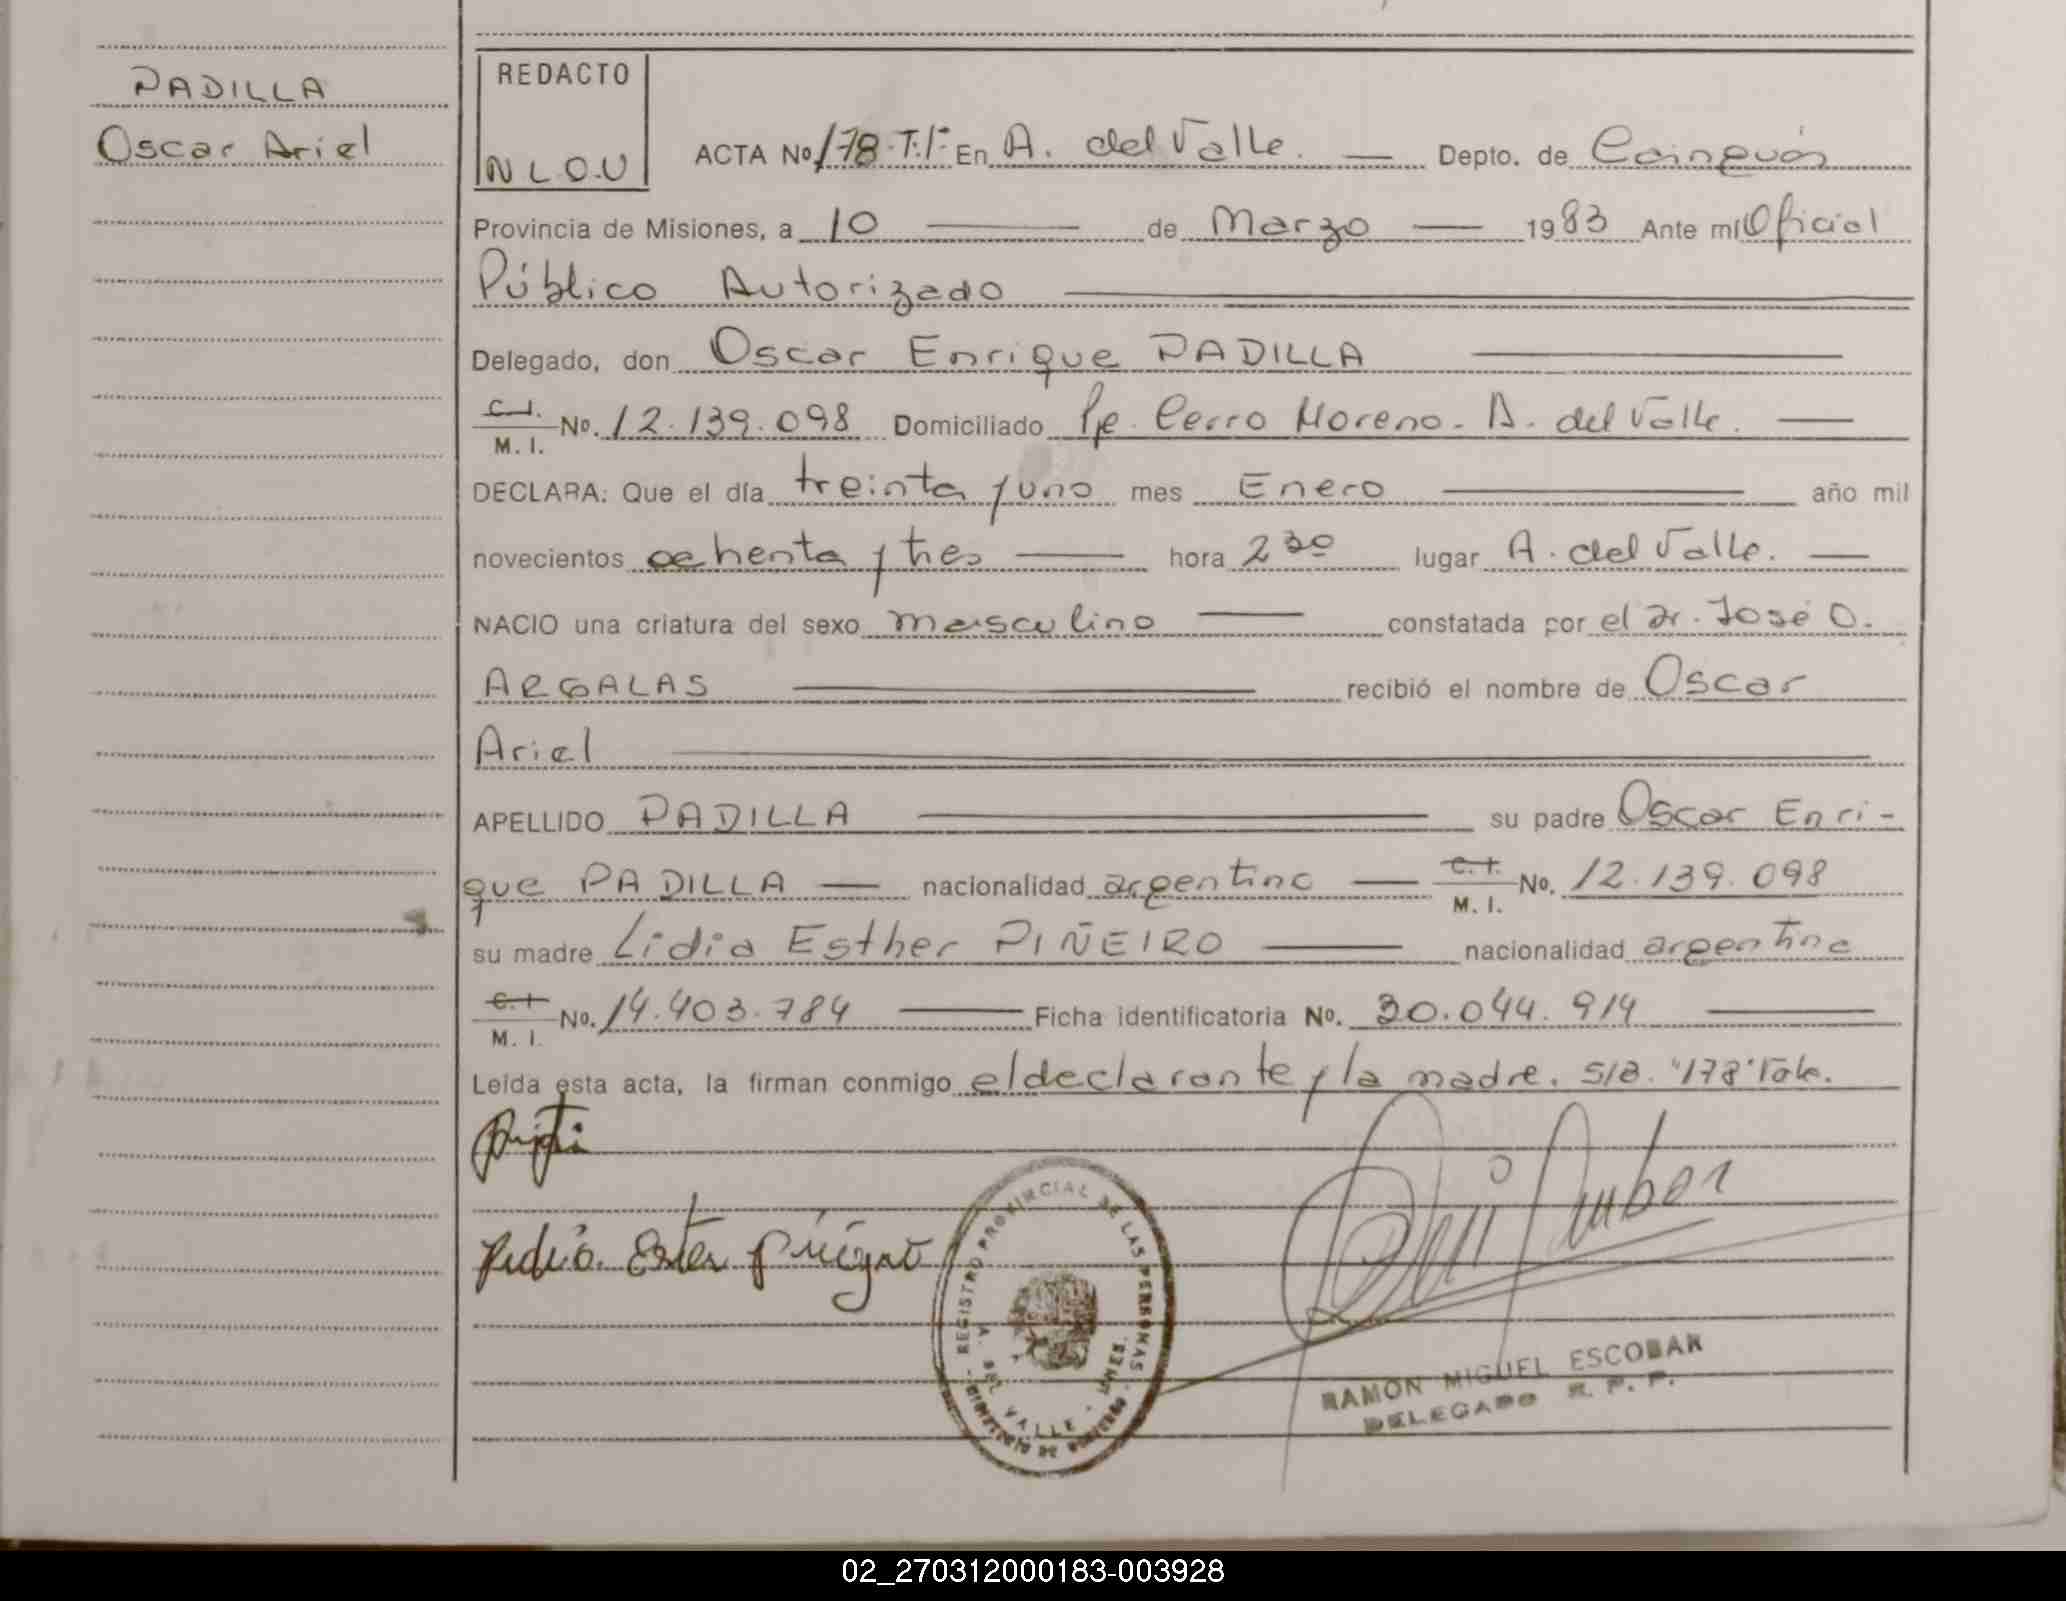 PADILLA
Oscar Ariel
REDACTO
N L.O.U
ACTA No 178.T.1º En A. del Valle. Depto. de Cainguás
Provincia de Misiones, a 10 de Marzo 1983 Ante mí Oficial
Público Autorizado
Delegado, don Oscar Enrique PADILLA
C.I. M.I. No. 12.139.098 Domiciliado Pje. Cerro Moreno. A. del Valle.
DECLARA: Que el día treinta y uno mes Enero año mil
novecientos ochenta y tres hora 2 30 lugar A. del Valle.
NACIO una criatura del sexo masculino constatada por el Dr. José O.
ARGALAS recibió el nombre de Oscar
Ariel
APELLIDO PADILLA su padre Oscar Enri-
que PADILLA nacionalidad argentino C.I. M.I. No. 12.139.098
su madre Lidia Esther PIÑEIRO nacionalidad argentina
C.I. M.I. No. 14.403.784 Ficha identificatoria No. 30.044.914
Leída esta acta, la firman conmigo el declarante y la madre. S/B. "178" Vale.
REGISTRO PROVINCIAL DE LAS PERSONAS
A. DEL VALLE - MNES.
RAMON MIGUEL ESCOBAR
DELEGADO R. P. P.
02_270312000183-003928